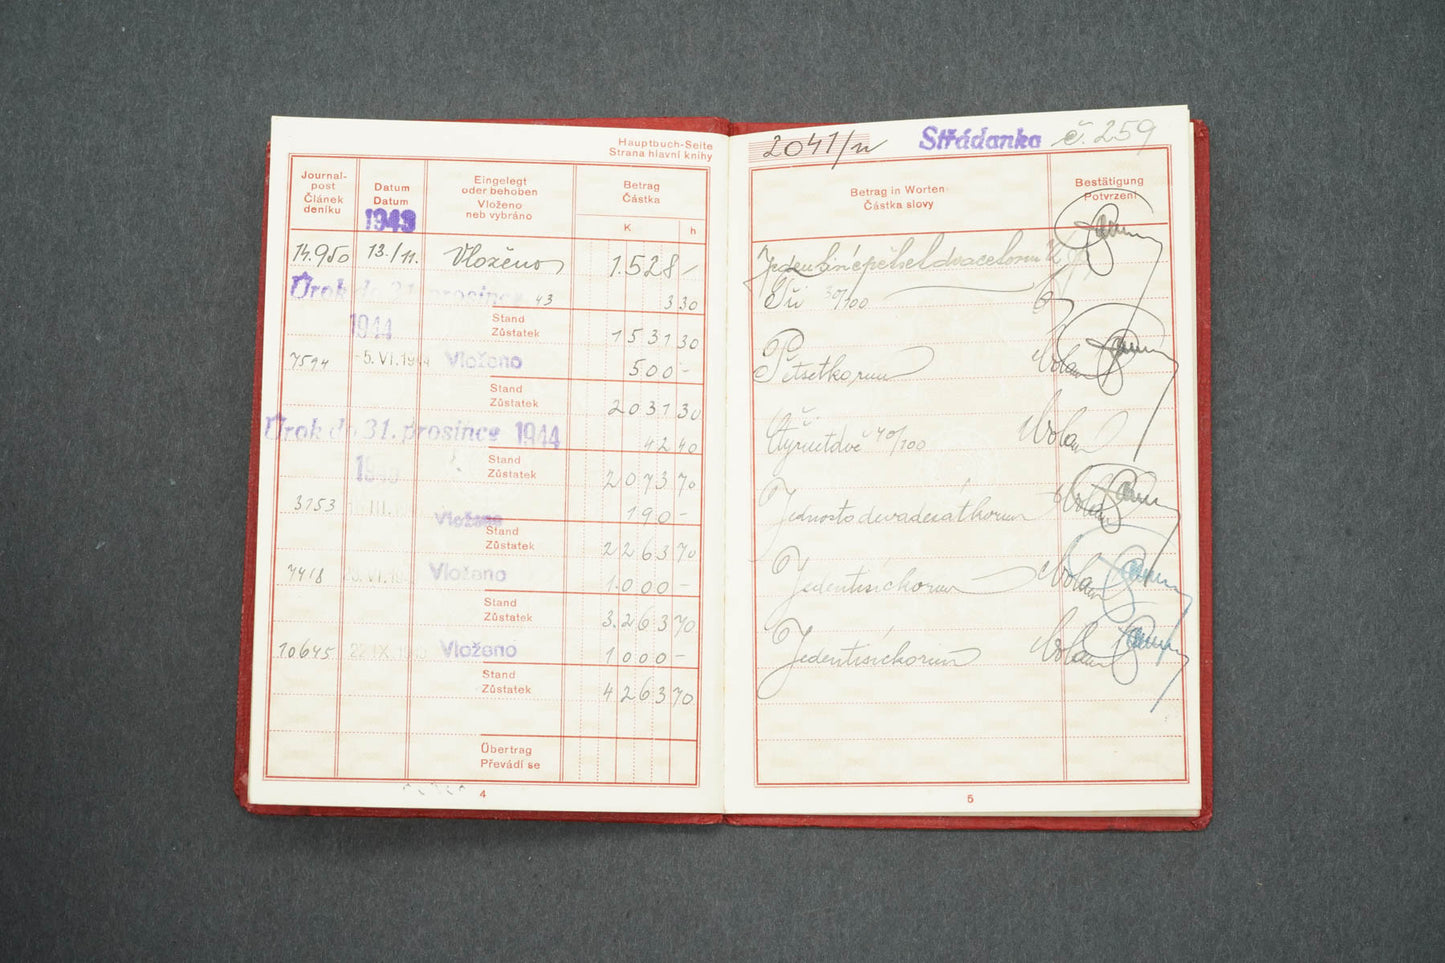 Hauptbuch-Seite
Strana hlavní knihy
Journal-
post
Článek
deníku
Datum
Datum
1943
Eingelegt
oder behoben
Vloženo
neb vybráno
Betrag
Částka
K h
14.950 13./11. Vloženo 1.528 –
Úrok do 31. prosince 43 3 30
Stand
Zůstatek 1 5 3 1 30
1944
7594 -5. VI. 1944 Vloženo 5 0 0 –
Stand
Zůstatek 2 0 3 1 30
Úrok do 31. prosince 1944 42 40
Stand
Zůstatek 2 0 7 3 70
3153 III. Vloženo 1 9 0 –
Stand
Zůstatek 2 2 6 3 70
7418 VI. Vloženo 1.0 0 0 –
Stand
Zůstatek 3.2 6 3 70
10645 22. IX. Vloženo 1 0 0 0 –
Stand
Zůstatek 4 2 6 3 70
Übertrag
Převádí se
4
2041/ Střádanka č. 259
Betrag in Worten
Částka slovy
Bestätigung
Potvrzení
Tři 30/100
Pětsetkorun
Čtyřicetdvě 40/100
Jednostodevadesátkorun
Jedentisíckorun
Jedentisíckorun
5